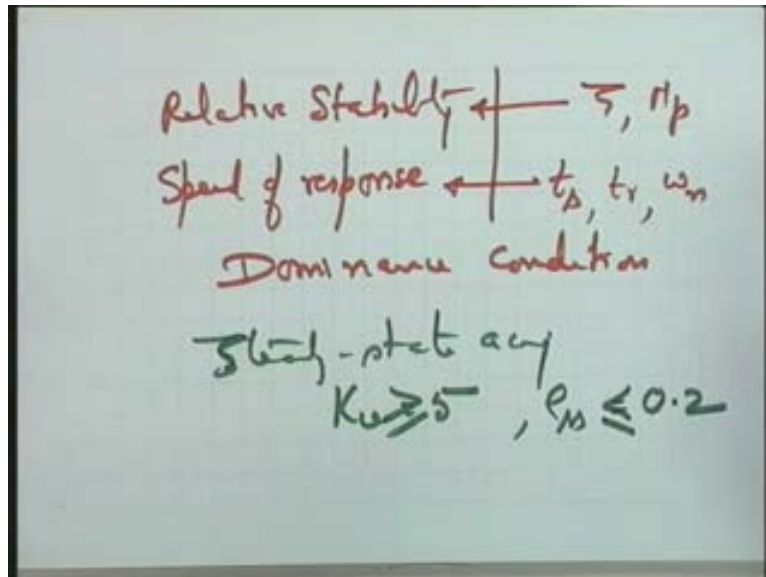 Relative Stability ← ζ, Mp
Speed of response ← ts, tr, ωn
Dominance condition
Steady-state accy
Kv ≥ 5, ess ≤ 0.2